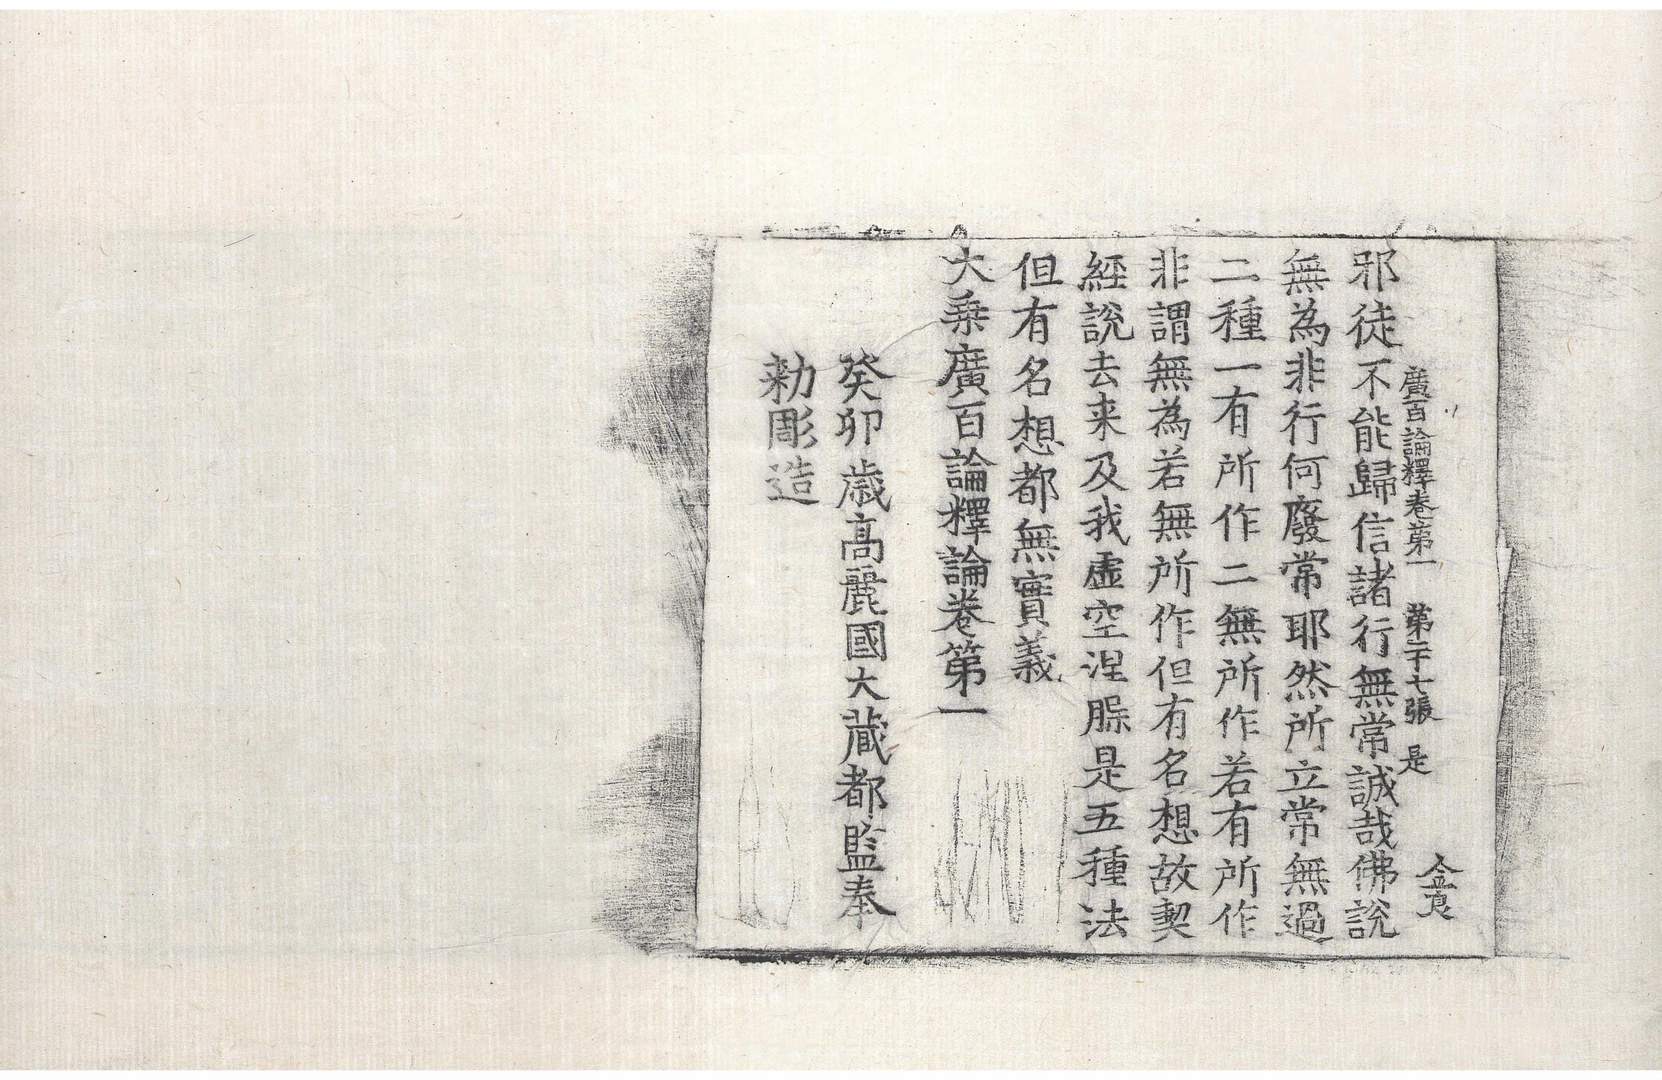 廣百論釋卷第一　第二十七張　是
邪徒不能歸信諸行無常誠哉佛說
無為非行何廢常耶然所立常無過
二種一有所作二無所作若有所作
非謂無為若無所作但有名想故契
經說去来及我虛空涅槃是五種法
但有名想都無實義
大乗廣百論釋論卷第一
癸卯歲高麗國大藏都監奉
勑彫造